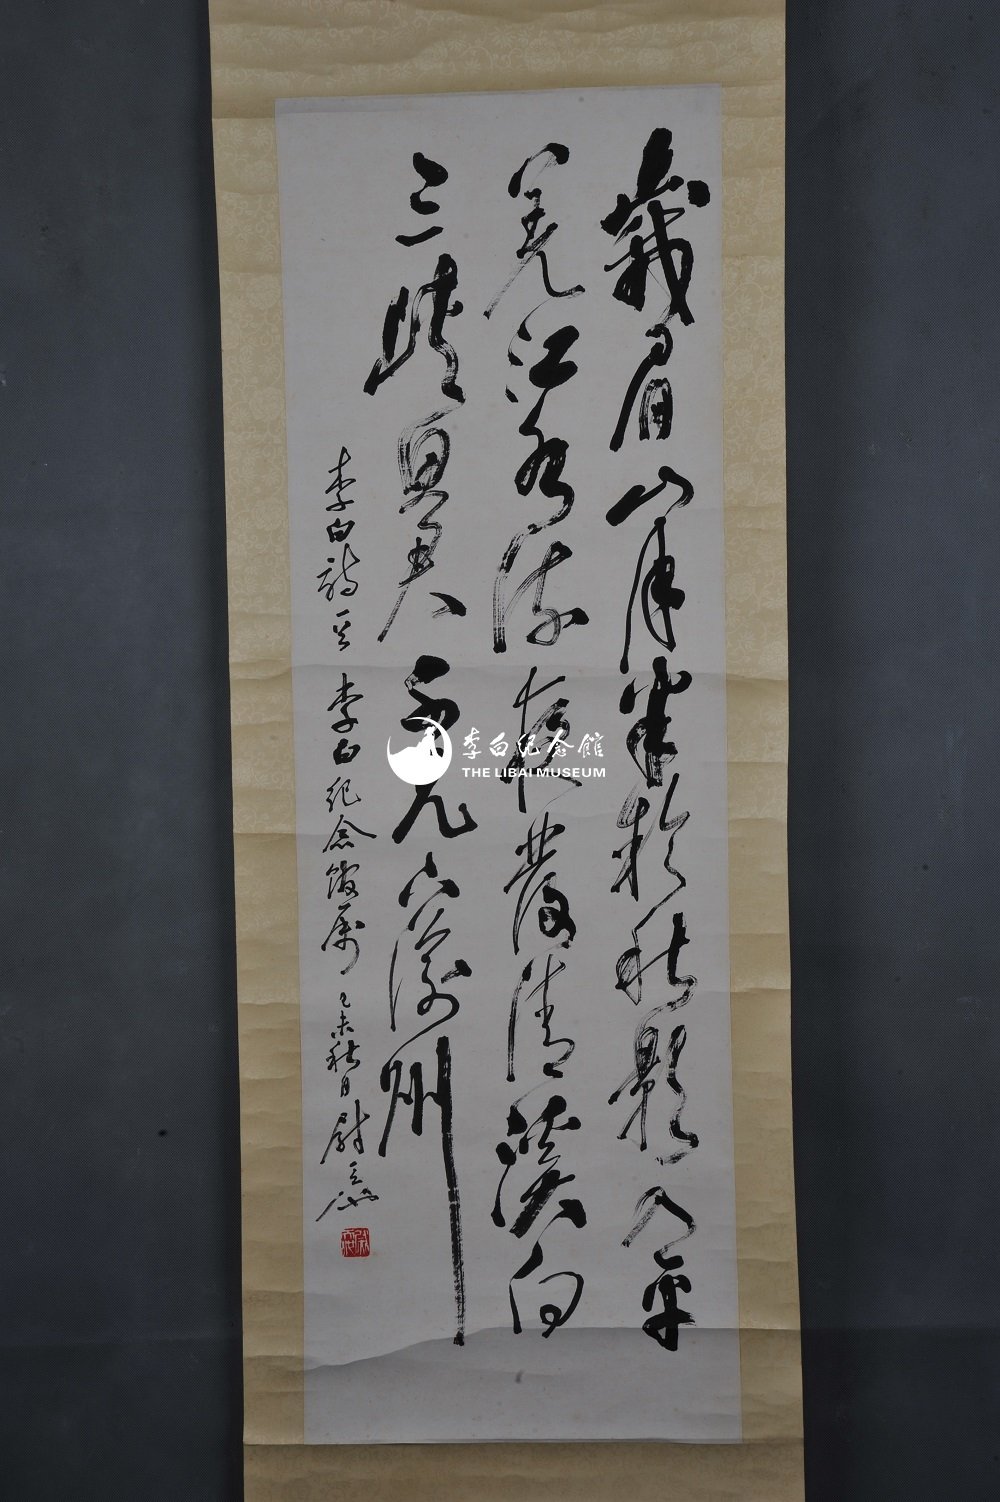 峩眉山月半輪秋影入平
羌江水流夜發清溪向
三峽思君不見下渝州
李白詩一首 李白紀念館屬 己未秋日 尉天池
李白纪念館
THE LIBAI MUSEUM